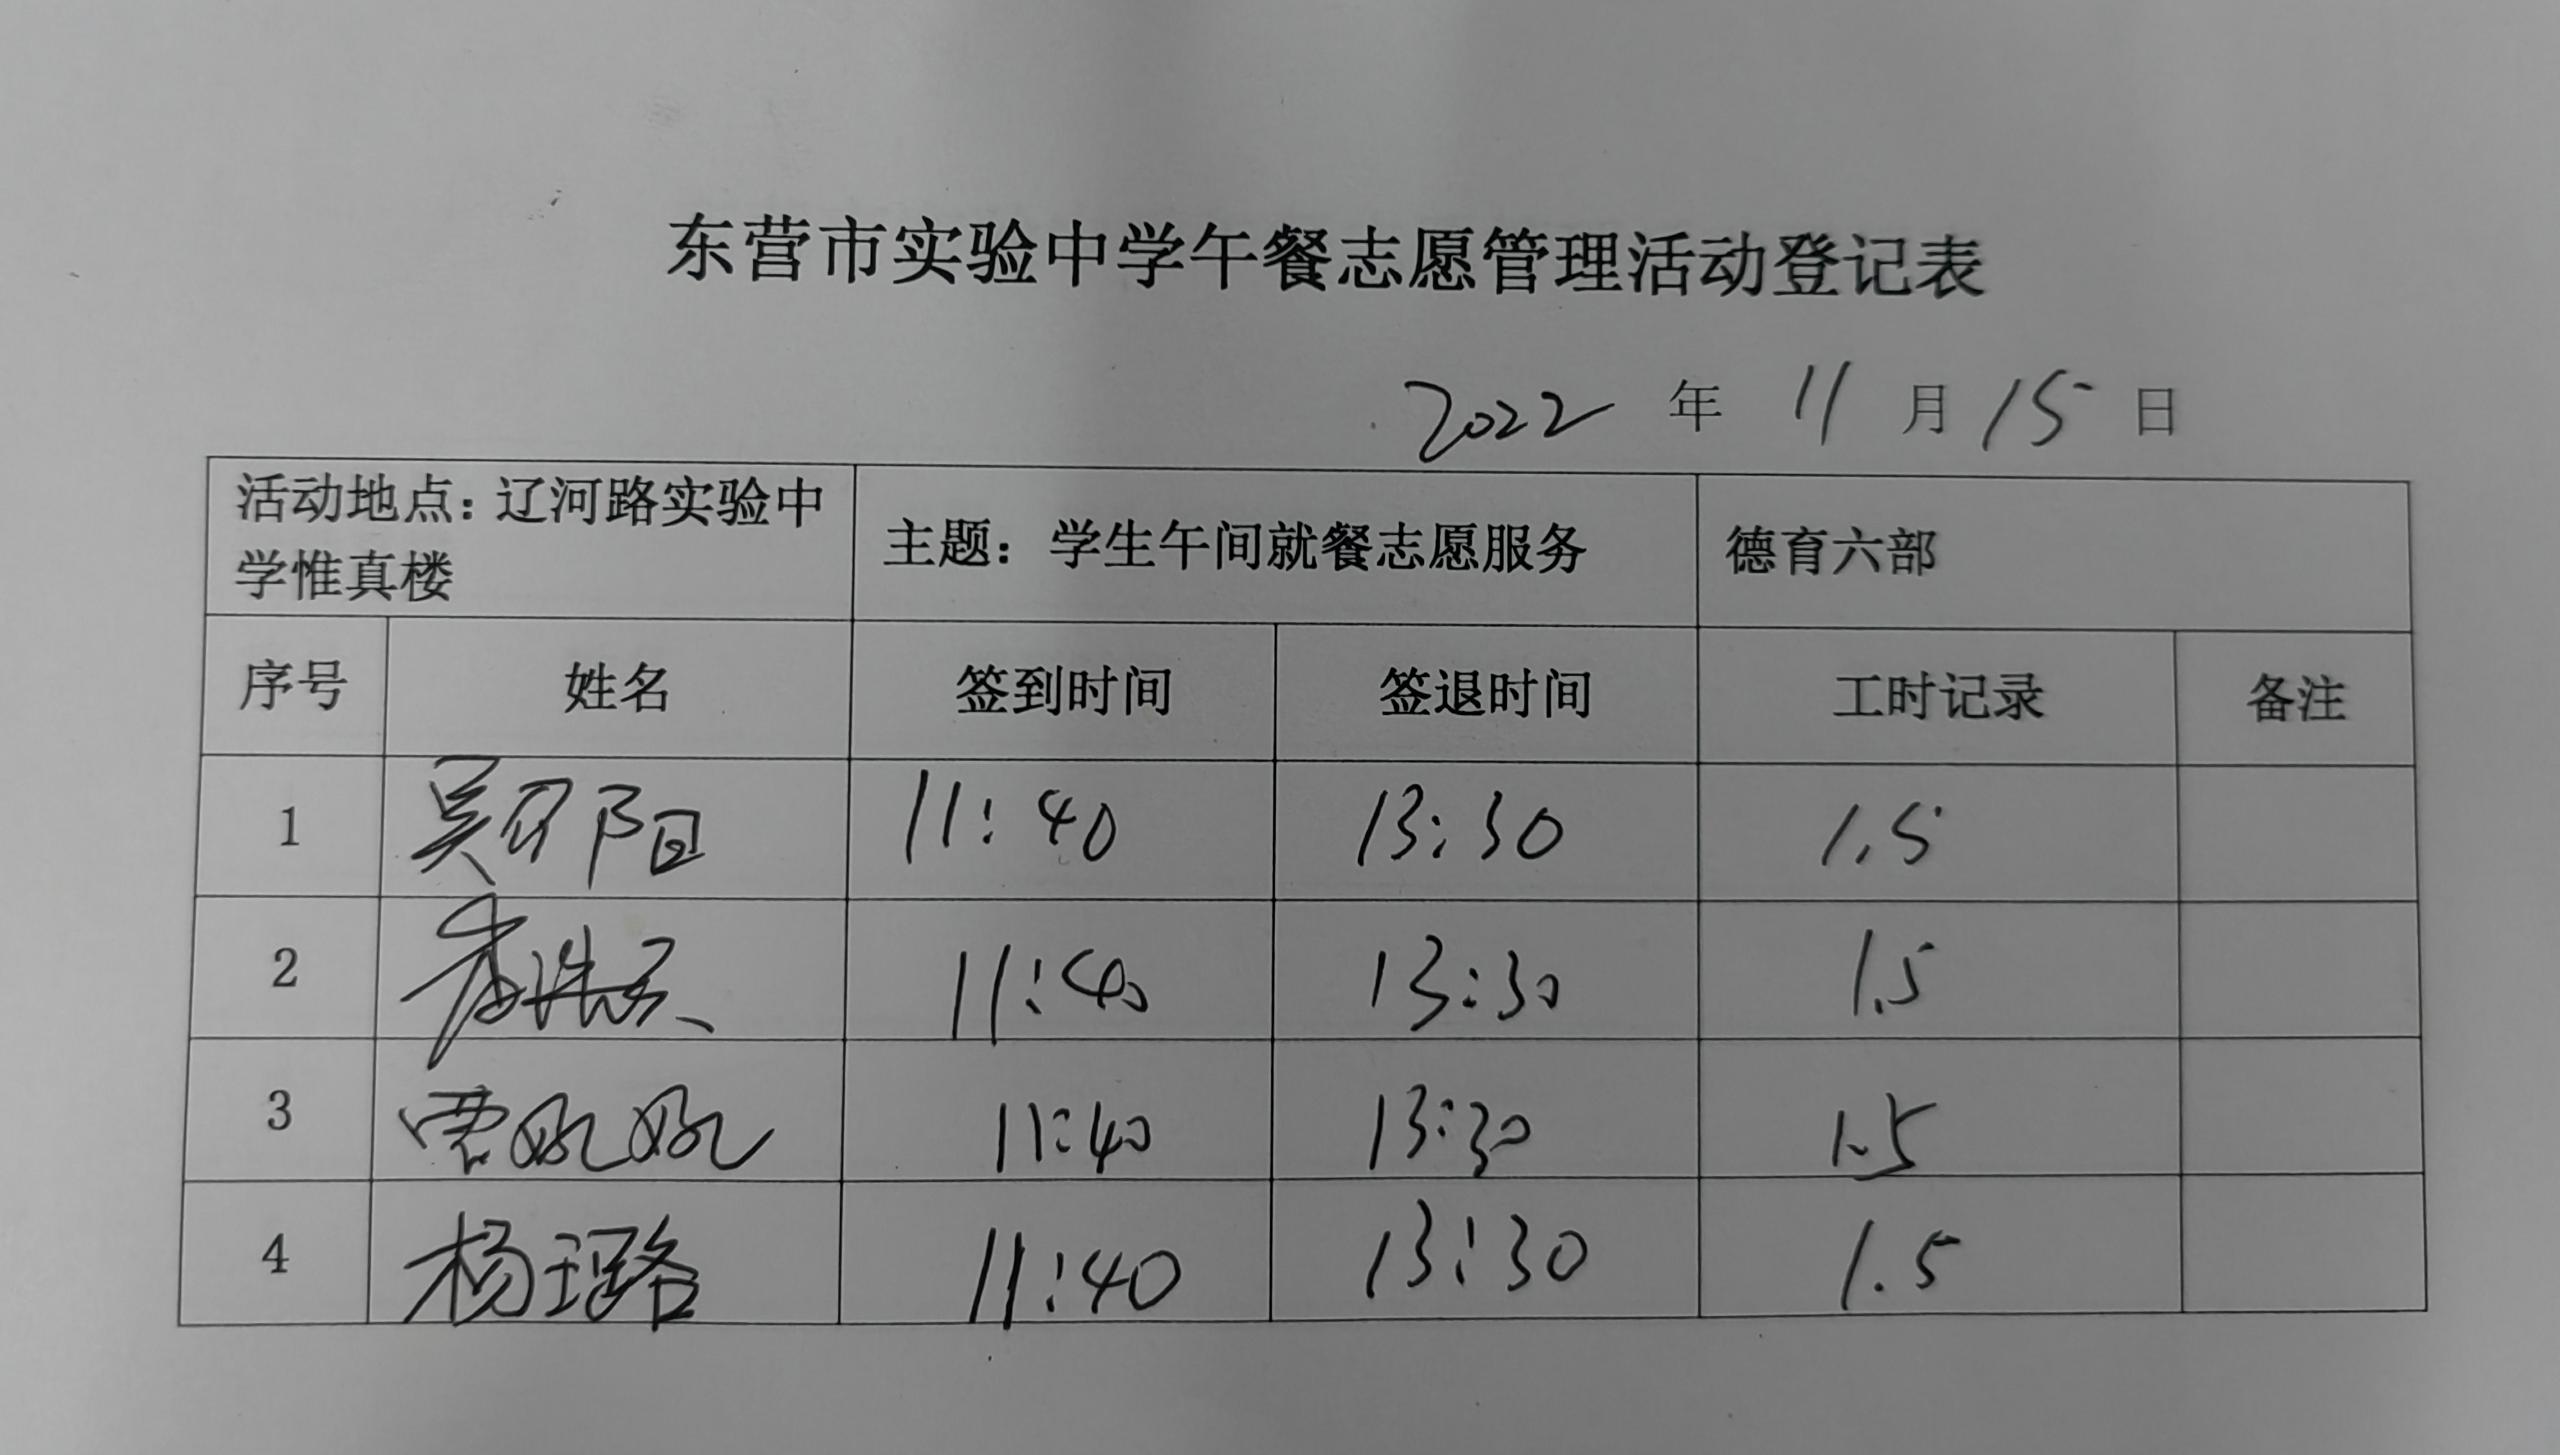 东营市实验中学午餐志愿管理活动登记表
2022 年 11 月 15 日
活动地点：辽河路实验中
学惟真楼
主题：学生午间就餐志愿服务
德育六部
序号 姓名 签到时间 签退时间 工时记录 备注
1 吴 阳 11:40 13:30 1.5
2 11:40 13:30 1.5
3 11:40 13:30 1.5
4 杨璐 11:40 13:30 1.5